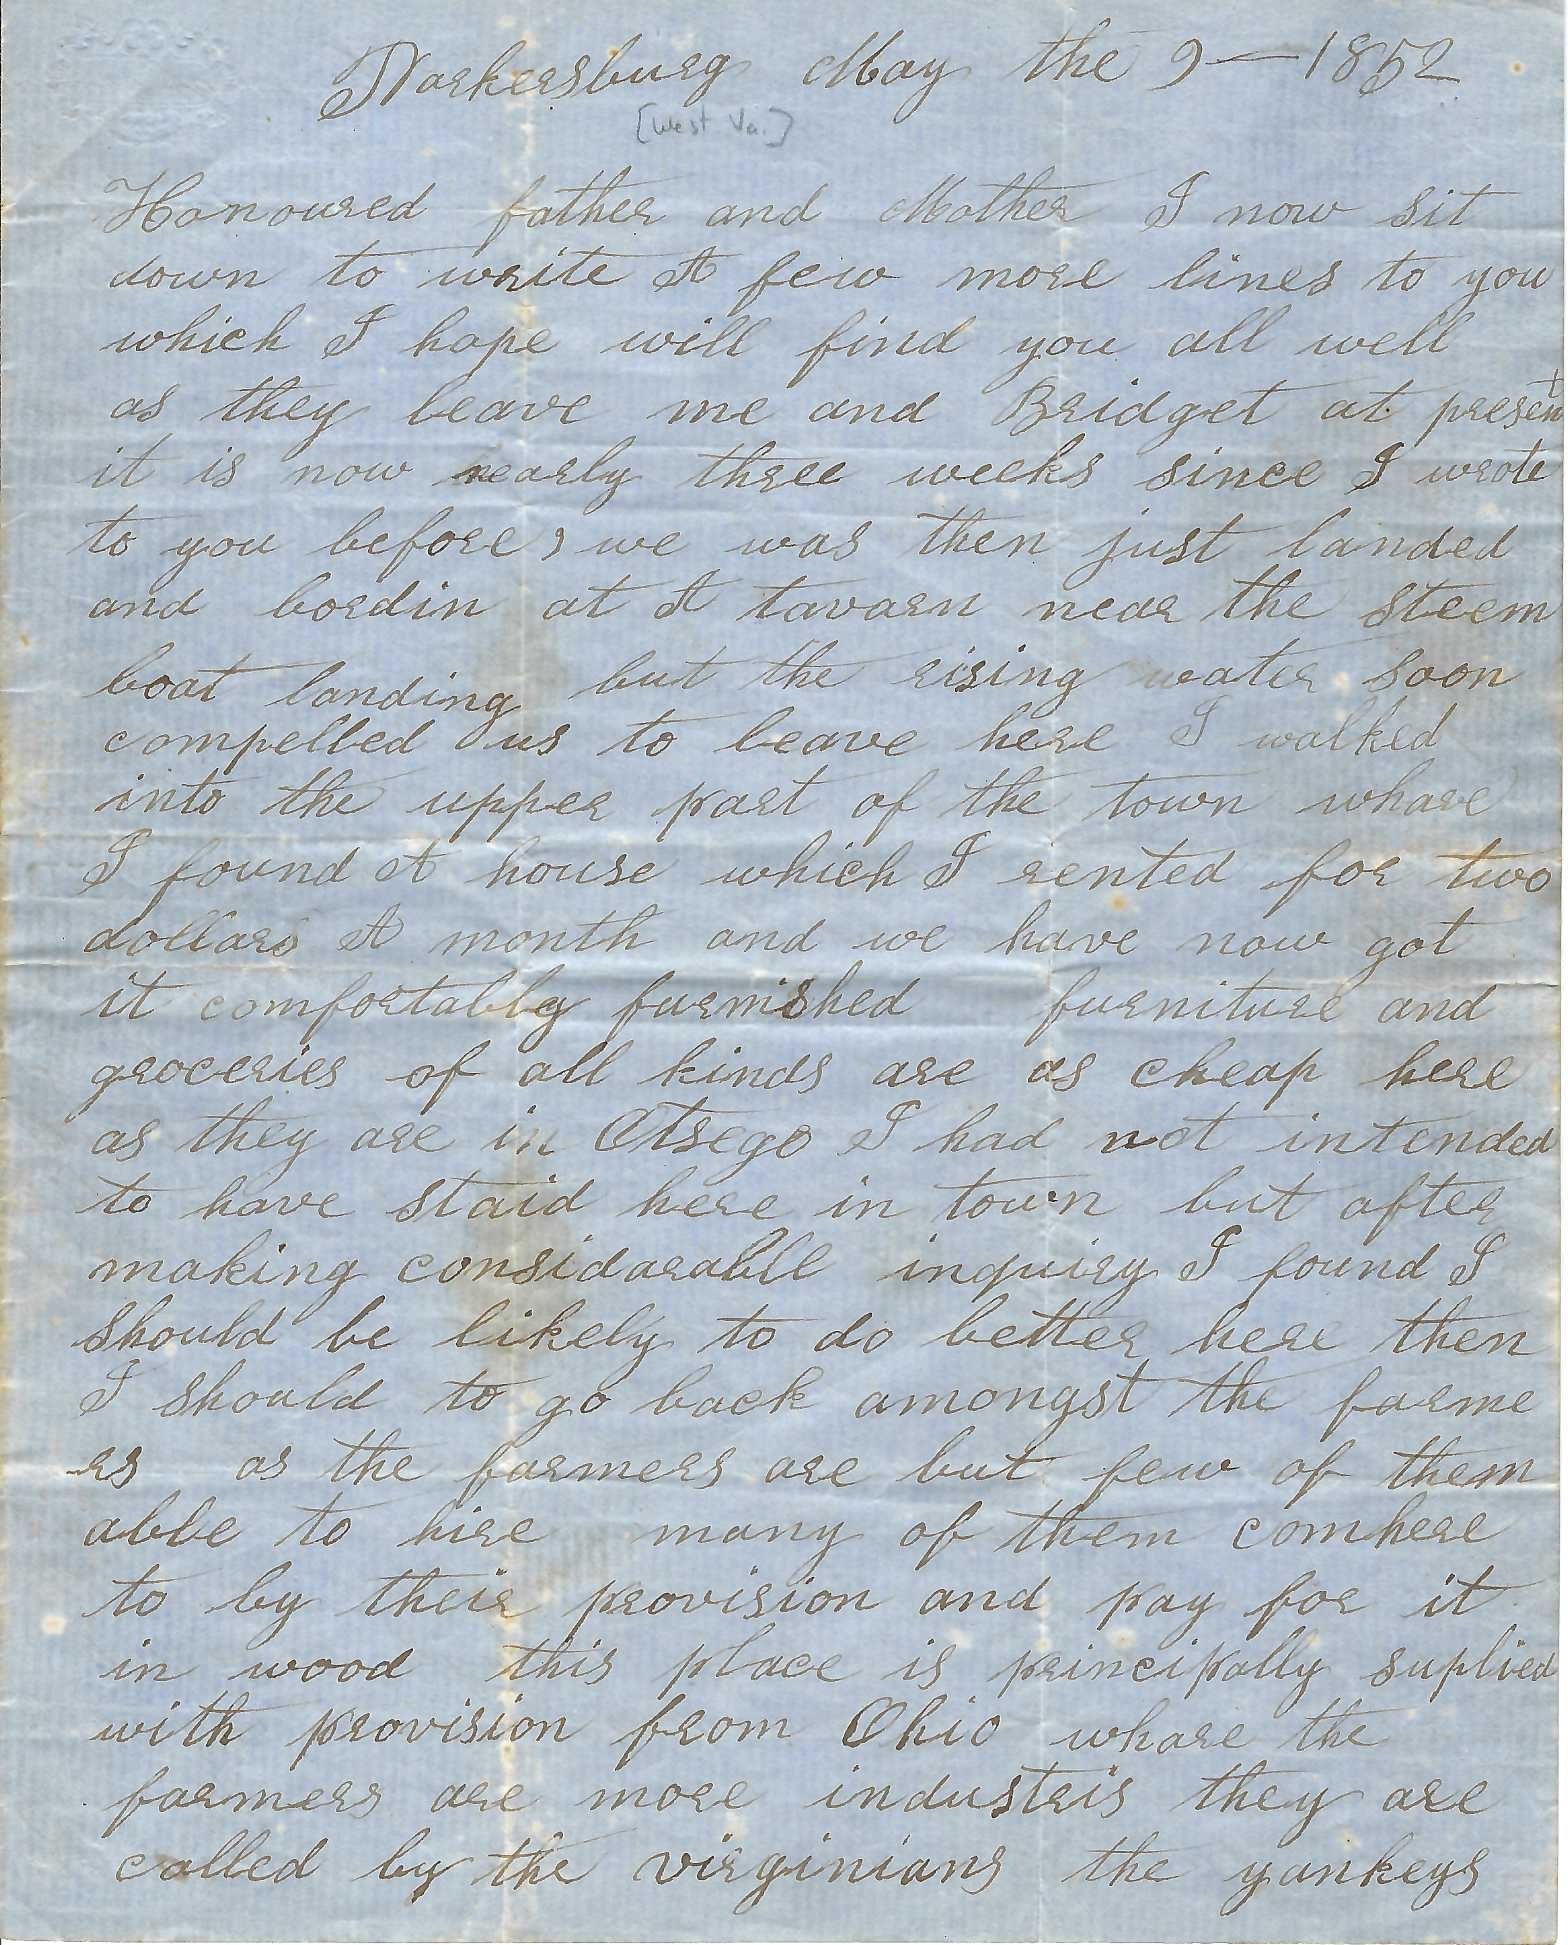 Parkersburg May the 9 — 1852
[West Va.]
Honoured father and Mother I now sit
down to write A few more lines to you
which I hope will find you all well
as they leave me and Bridget at present
it is now nearly three weeks since I wrote
to you before, we was then just landed
and bordin at A tavarn near the steem
boat landing but the rising water soon
compelled us to leave here I walked
into the upper part of the town whare
I found A house which I rented for two
dollars A month and we have now got
it comfortably furnished furniture and
groceries of all kinds are as cheap here
as they are in Otsego I had not intended
to have staid here in town but after
making considarable inquiry I found I
should be likely to do better here then
I should to go back amongst the farme
rs as the farmers are but few of them
able to hire many of them comhere
to by their provision and pay for it
in wood this place is principally suplied
with provision from Ohio whare the
farmers are more industris they are
called by the virginians the yankeys